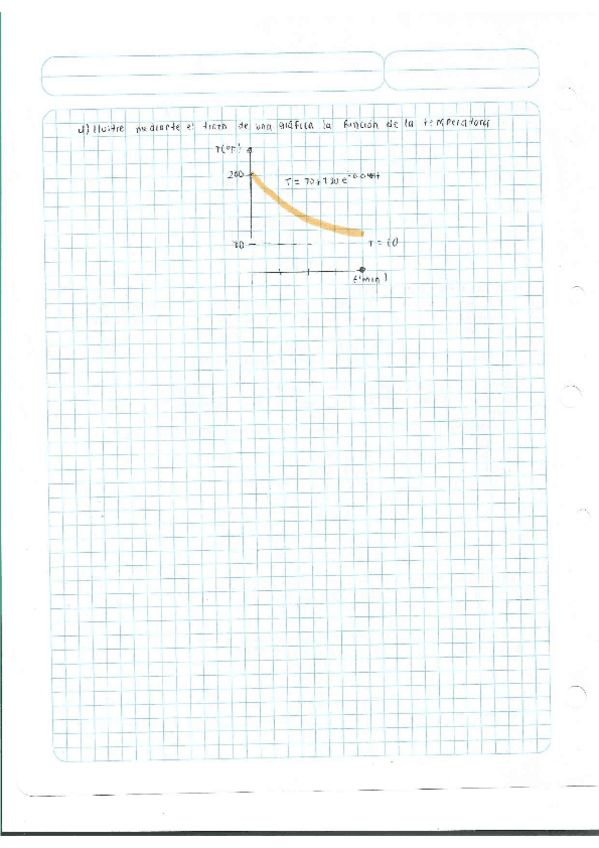 d) Ilustre mediante el trazo de una gráfica la función de la temperatura
T(°F)
200
T = 70 + 130 e
70
T =
t(min)